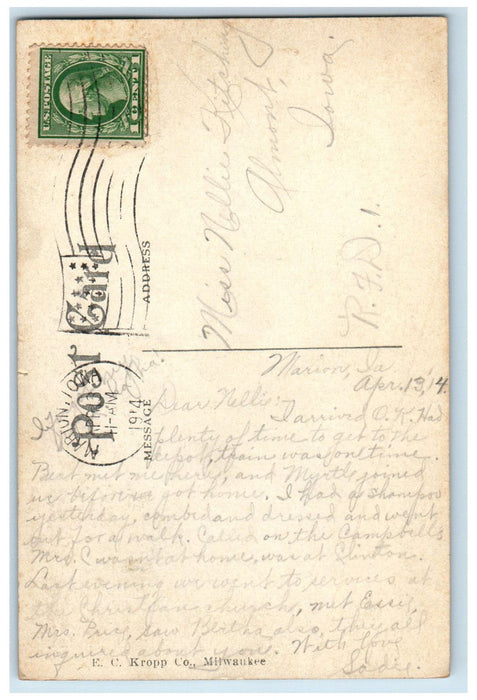 U.S. POSTAGE
1 CENT 1
Post Card
MARION, IOWA
11-AM
1914
ADDRESS
MESSAGE
Miss Nellie Kitchin
Almont,
Iowa.
R.F.D. 1.
Marion, Ia
Apr. 13, 14.
Dear Nellie:-
I arrived O.K. Had
plenty of time to get to the
depot, train was on time.
Beat met me here, and Myrtle joined
us before we got home. I had a shampoo
yesterday, combed and dressed and went
out for a walk. Called on the Campbells
Mrs. C wasn't at home, was at Clinton.
Last evening we went to services at
the Christian church, met Essie,
Mrs. Price, saw Bertha also, they all
inquired about you. With love
Sadie.
E. C. Kropp Co., Milwaukee